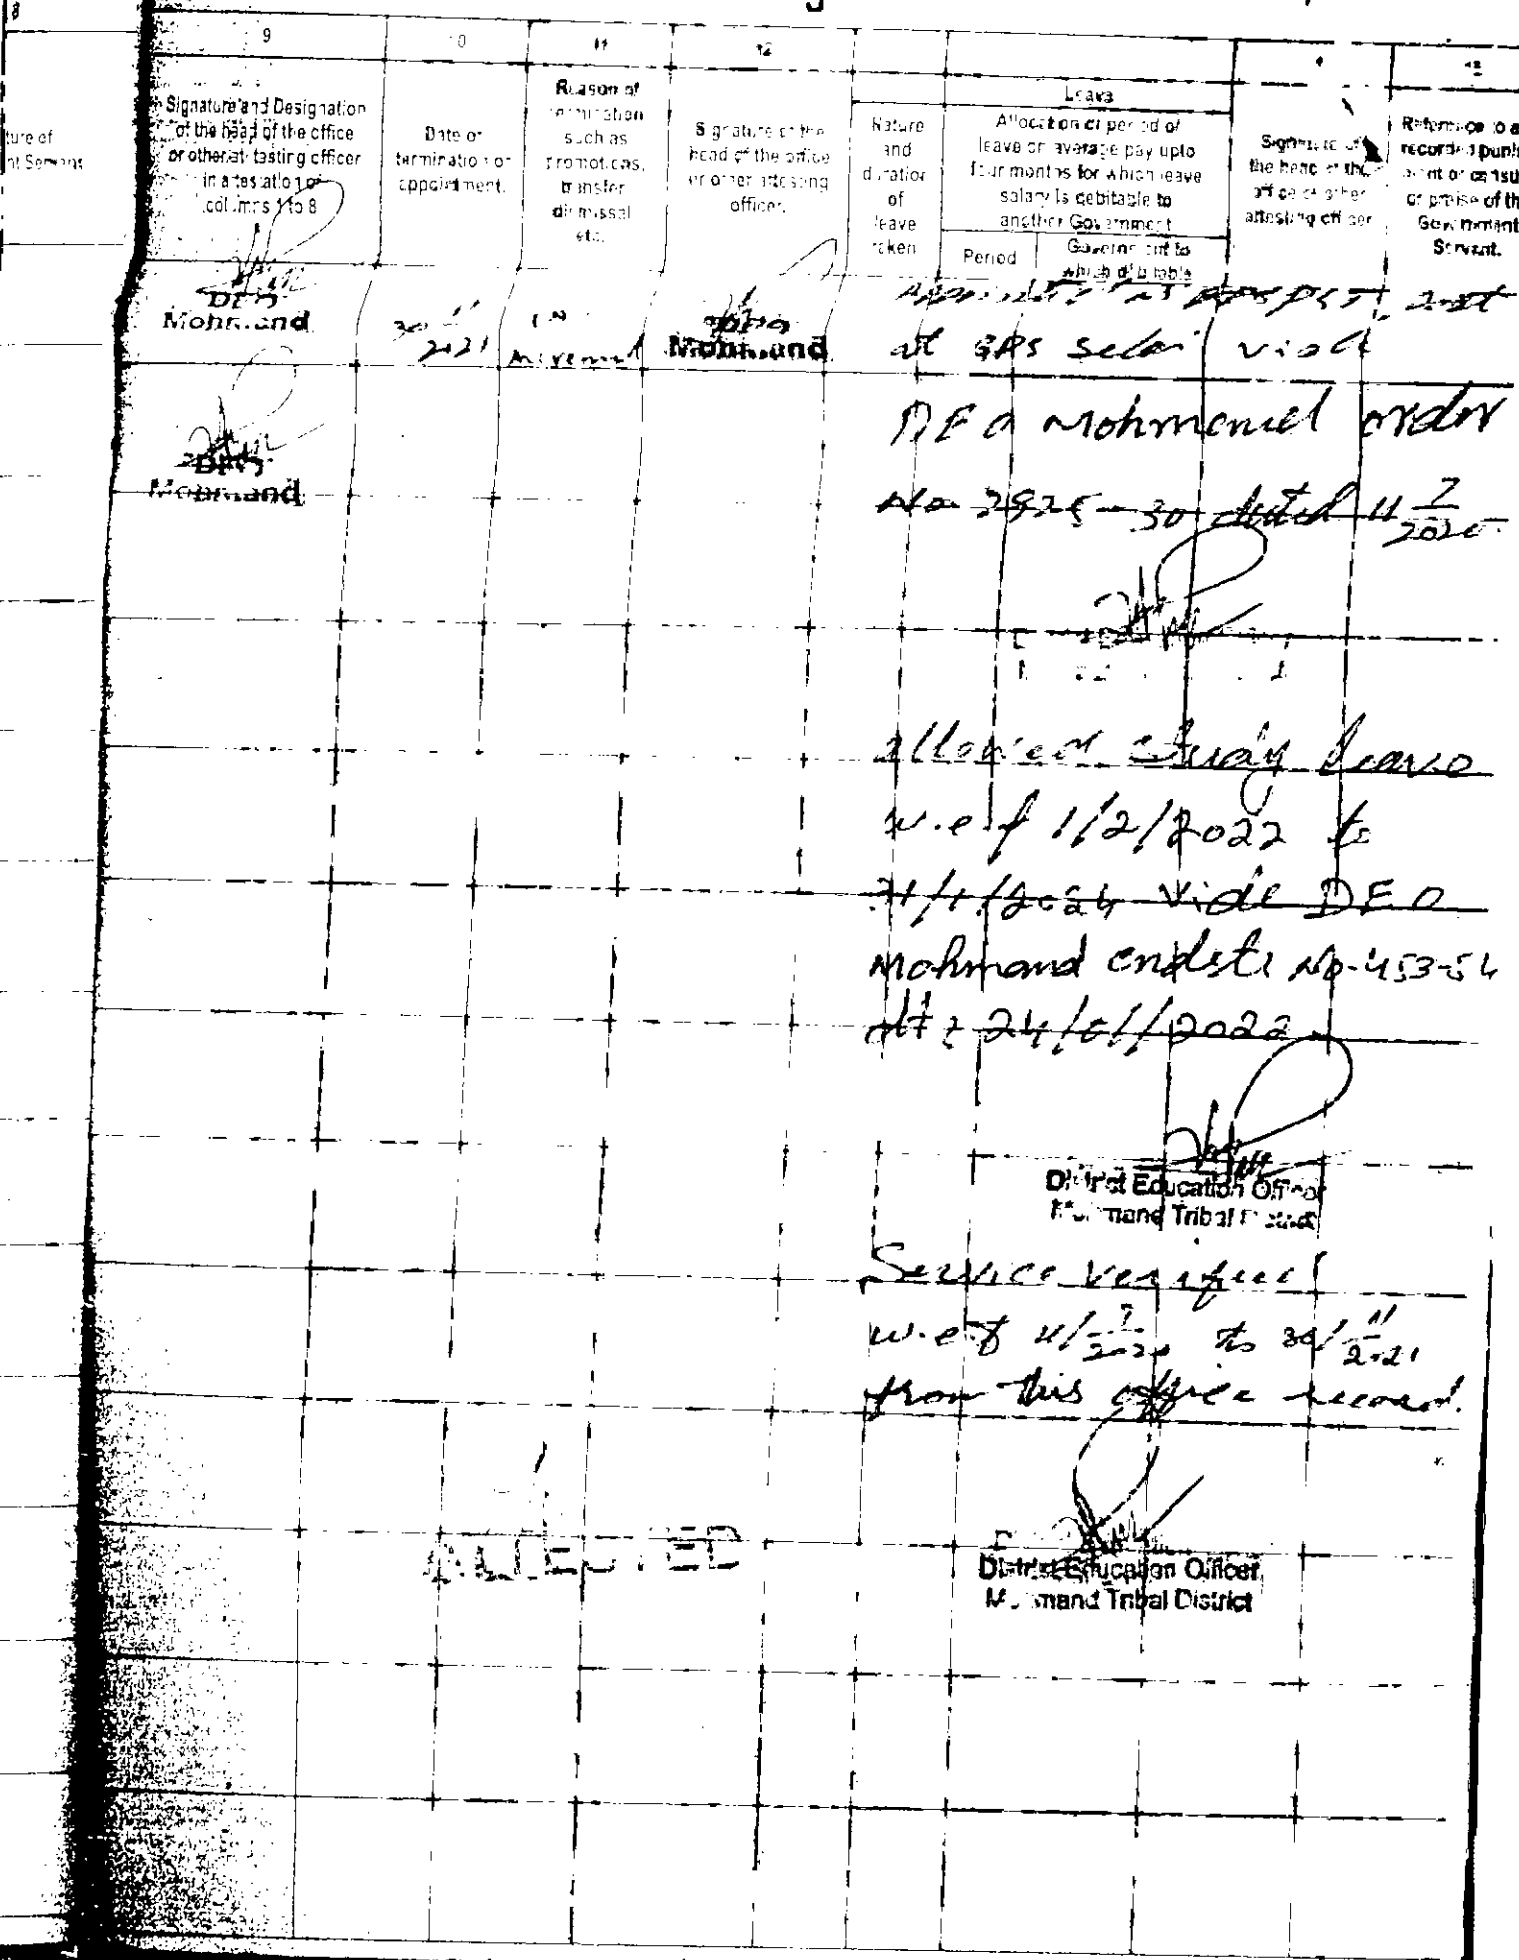 8
9
10
11
12
Signature and Designation
of the head of the office
or other attesting officer
in attestation of
columns 1 to 8
Date of
termination or
appointment.
Reason of
termination
such as
promotions,
transfer
dismissal
etc.
Signature of the
head of the office
or other attesting
officer.
Leave
Nature
and
duration
of
leave
taken
Allocation of period of
leave on average pay upto
four months for which leave
salary is debitable to
another Government
Period
Government to
which debitable
Signature of
the head of the
office or other
attesting officer
Reference to a
recorded punis
ment or censu
or praise of th
Government
Servant.
ture of
nt Servant
DEO
Mohmand
30/11/2021
DEO
Mohmand
at GPS vide
DEO Mohmand order
No 2925-30 dated 11/7/2020
DEO
Mohmand
allowed study leave
w.e.f 1/2/2022 to
31/1/2024 vide DEO
Mohmand endst: No-453-54
dt: 24/01/2022
District Education Officer
Mohmand Tribal District
Service verified
w.e.f 11/7/2020 to 30/11/2021
from this office record.
ATTESTED
District Education Officer
Mohmand Tribal District